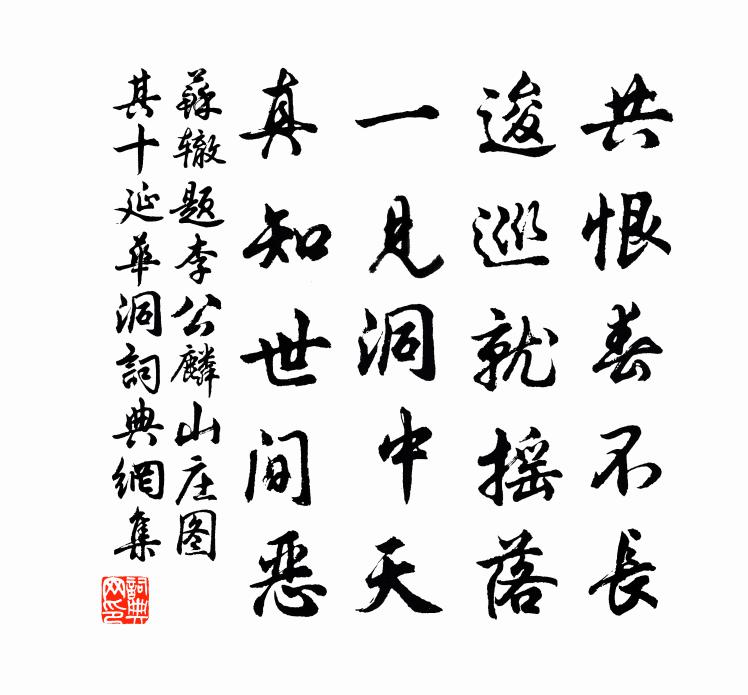 共恨春不長
逡巡就摇落
一見洞中天
真知世间恶
蘇辙题李公麟山庄图
其十延華洞詞典網集
詞典
网印